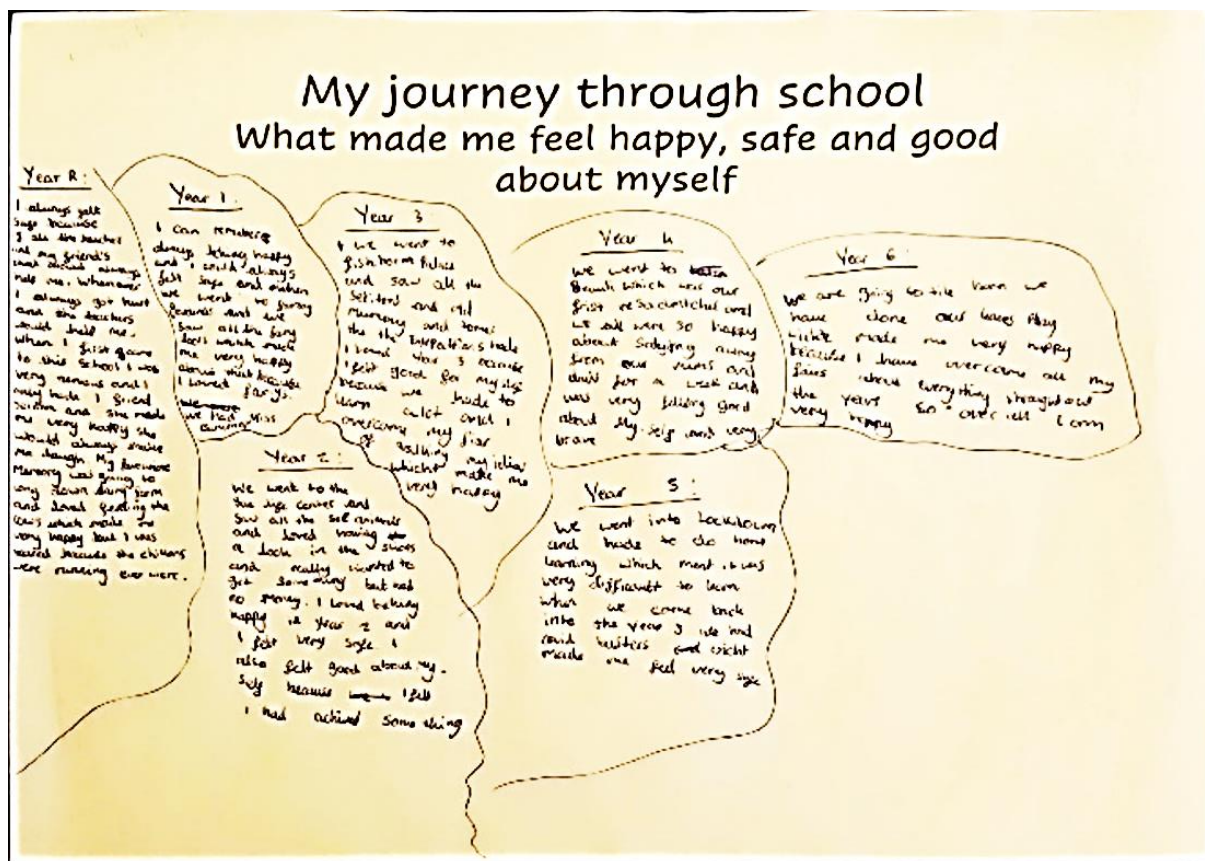 My journey through school
What made me feel happy, safe and good
about myself
Year R:
I always felt
safe because
all the teacher
and my friend's
always
help me. Whenever
I always got hurt
and the teachers
would help me.
When I first came
to this school I was
very nervous and I
only made 1 friend
and she made
me very happy she
would always make
me laugh. My favourite
Memory was going to
long down farm
and loved feeding the
cows which made me
very happy but I was
because the chickens
were running ever were.
Year 1:
I can remember
always feeling happy
and I could always
felt safe and when
we went to
and we
saw all the
which made
me very happy
because
I Loved
we had Miss
Year 2:
We went to the
center and
saw all the
and loved having
a look in the shops
and really wanted to
get something but had
no money. I Loved being
happy in Year 2 and
I felt very safe. I
also felt good about my.
self because I felt
I had achived something
Year 3:
we went to
fishborn Palace
and saw all the
and old
and
the the
I loved Year 3 because
I felt good for my self
because we had to
learn a lot and I
overcame my fear
of talking
which make me
very happy
Year 4
We went to
which was our
frist residential and
we all were so happy
about staying away
from our mums and
dad's for a week and
was very feeling good
about My self and very
brave
Year 5:
We went into Lockdown
and hade to do home
learning which ment it was
very difficult to learn
when we came back
into the year 5 we had
covid and wicht
made me feel very safe
Year 6:
We are going to the barn we
have done our
which made me very happy
because I have overcome all my
fears about everything throughout
the years so over all I am
very happy